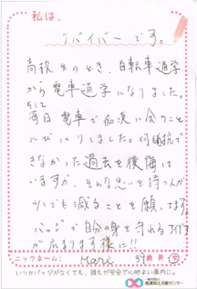 私は、
サバイバーです。
高校生のとき、自転車通学
から電車通学になりました。
そして
毎日電車で痴漢に会うこと
にびっくりしました。何も抵抗で
きなかった過去を後悔は
いますが、そんな思いを持つ人が
少しでも減ることを願ってます。
バッジで自分の身を守れる
が広まります様に!!
ニックネーム:
いつかバッジがなくても、誰もが安全で心地よい車内に。
痴漢抑止活動センター